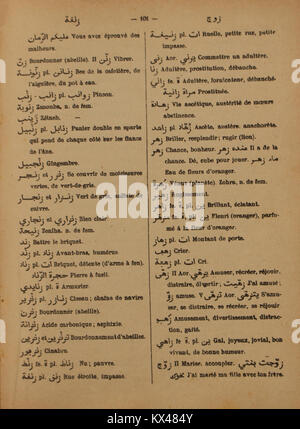 زنقة — 101 — زوج
مليكم الزمان Vous avez éprouvé des
malheurs.
زن Bourdonner (abeille). II زنن Vibrer.
زنونة pl. زنانن Bec de la cafetière, de
l'aiguière, du pot à eau.
زنب pl. زوانب Pinson.
زنوبة Zenouba, n. de fem.
زينب Zéineb.
زنبيل pl. زنابل Panier double en sparte
qui pend de chaque côté sur les flancs
de l'âne.
زنجبيل Gingembre.
زنجر Se couvrir de moisissures
vertes, de vert-de-gris.
زنجار Vert de gris, vert militaire,
cuivre.
زنجاري Bien cher.
زنيخة Zenikha, n. de fem.
زند Battre le briquet.
زند pl. زناد Avant-bras, humérus
زناد pl. ات Briquet, détente (d'arme à feu).
حجرة الزناد Pierre à fusil.
زنايدي pl. ة Armurier.
Ciseau; chaîne de navire
زنزن Bourdonner (abeille).
زنزانة Acide carbonique; asphyxie.
Bourdonnement d'abeilles.
زنجفور Cinabre.
زنط pl. Nu; pauvre.
زنقة pl. زنق Rue étroite, impasse.
زنيقة pl. ات Ruelle, petite rue, petite
impasse.
زنى Aor. يزني Commettre un adultère.
زنا Adultère, prostitution, débauche.
زاني fe. ة pl. Adultère, fornicateur, débauché.
مراة زانية Prostituée.
زهادة Vie ascétique, austérité de mœurs
abstinence.
زاهد pl. زهاد Ascète, austère, anachorète.
زهر Briller, resplendir; rugir (lion).
زهر Chance, bonheur. عنده زهر Il a de la
chance. Dé, cube pour jouer. ماء زهر
Eau de fleurs d'oranger.
زهرة Vénus (planète). Zohra, n. de fem.
زهور Rugissement.
زاهر Brillant, éclatant.
زهري fe. ة pl. ين Fleuri (oranger), parfu-
mé à la fleur d'oranger.
زهاز pl. ات Montant de porte.
زهق Crier.
زهقة pl. ات Cri.
زهى II Aor. يزهي Amuser, récréer, réjouir,
distraire, divertir; égayer. زهيت J'ai amusé;
زهو amuse. V تزهى Aor. يتزهى S'amuser,
se distraire, se récréer, se réjouir
زهو Amusement, divertissement, distrac-
tion, gaîté.
زاهي fe. ة pl. ين Gai, joyeux, jovial, bon
vivant, de bonne humeur.
زوج II Marier. accoupler. زوجت بنتي
J'ai marié ma fille avec ton frère.
alamy
KX484Y